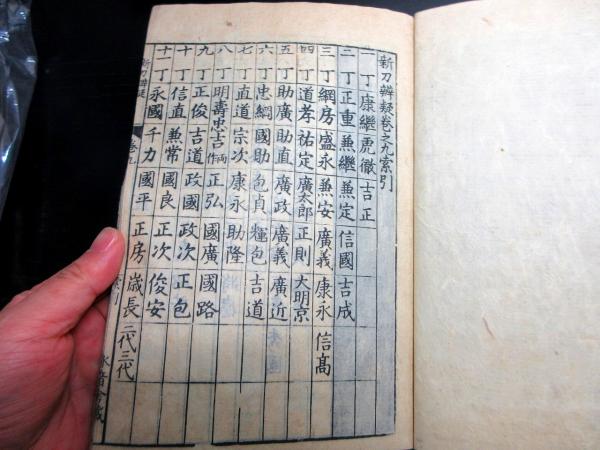 新刀辨疑卷之九索引
一丁康繼虎徹吉正
二丁正重兼繼兼定信國吉成
三丁綱房盛永兼安廣義康永信髙
四丁道孝祐定廣太郎正則大明京
五丁助廣助直廣政廣義廣近
六丁忠綱國助包貞輝包吉道
七丁直道宗次康永助隆
八丁明壽忠吉両作正弘國廣國路
九丁正俊吉道政國政次正包
十丁信直兼常國良正次俊安
十一丁永國千力國平正房歳長二代三代
新刀辨疑 卷九 索引